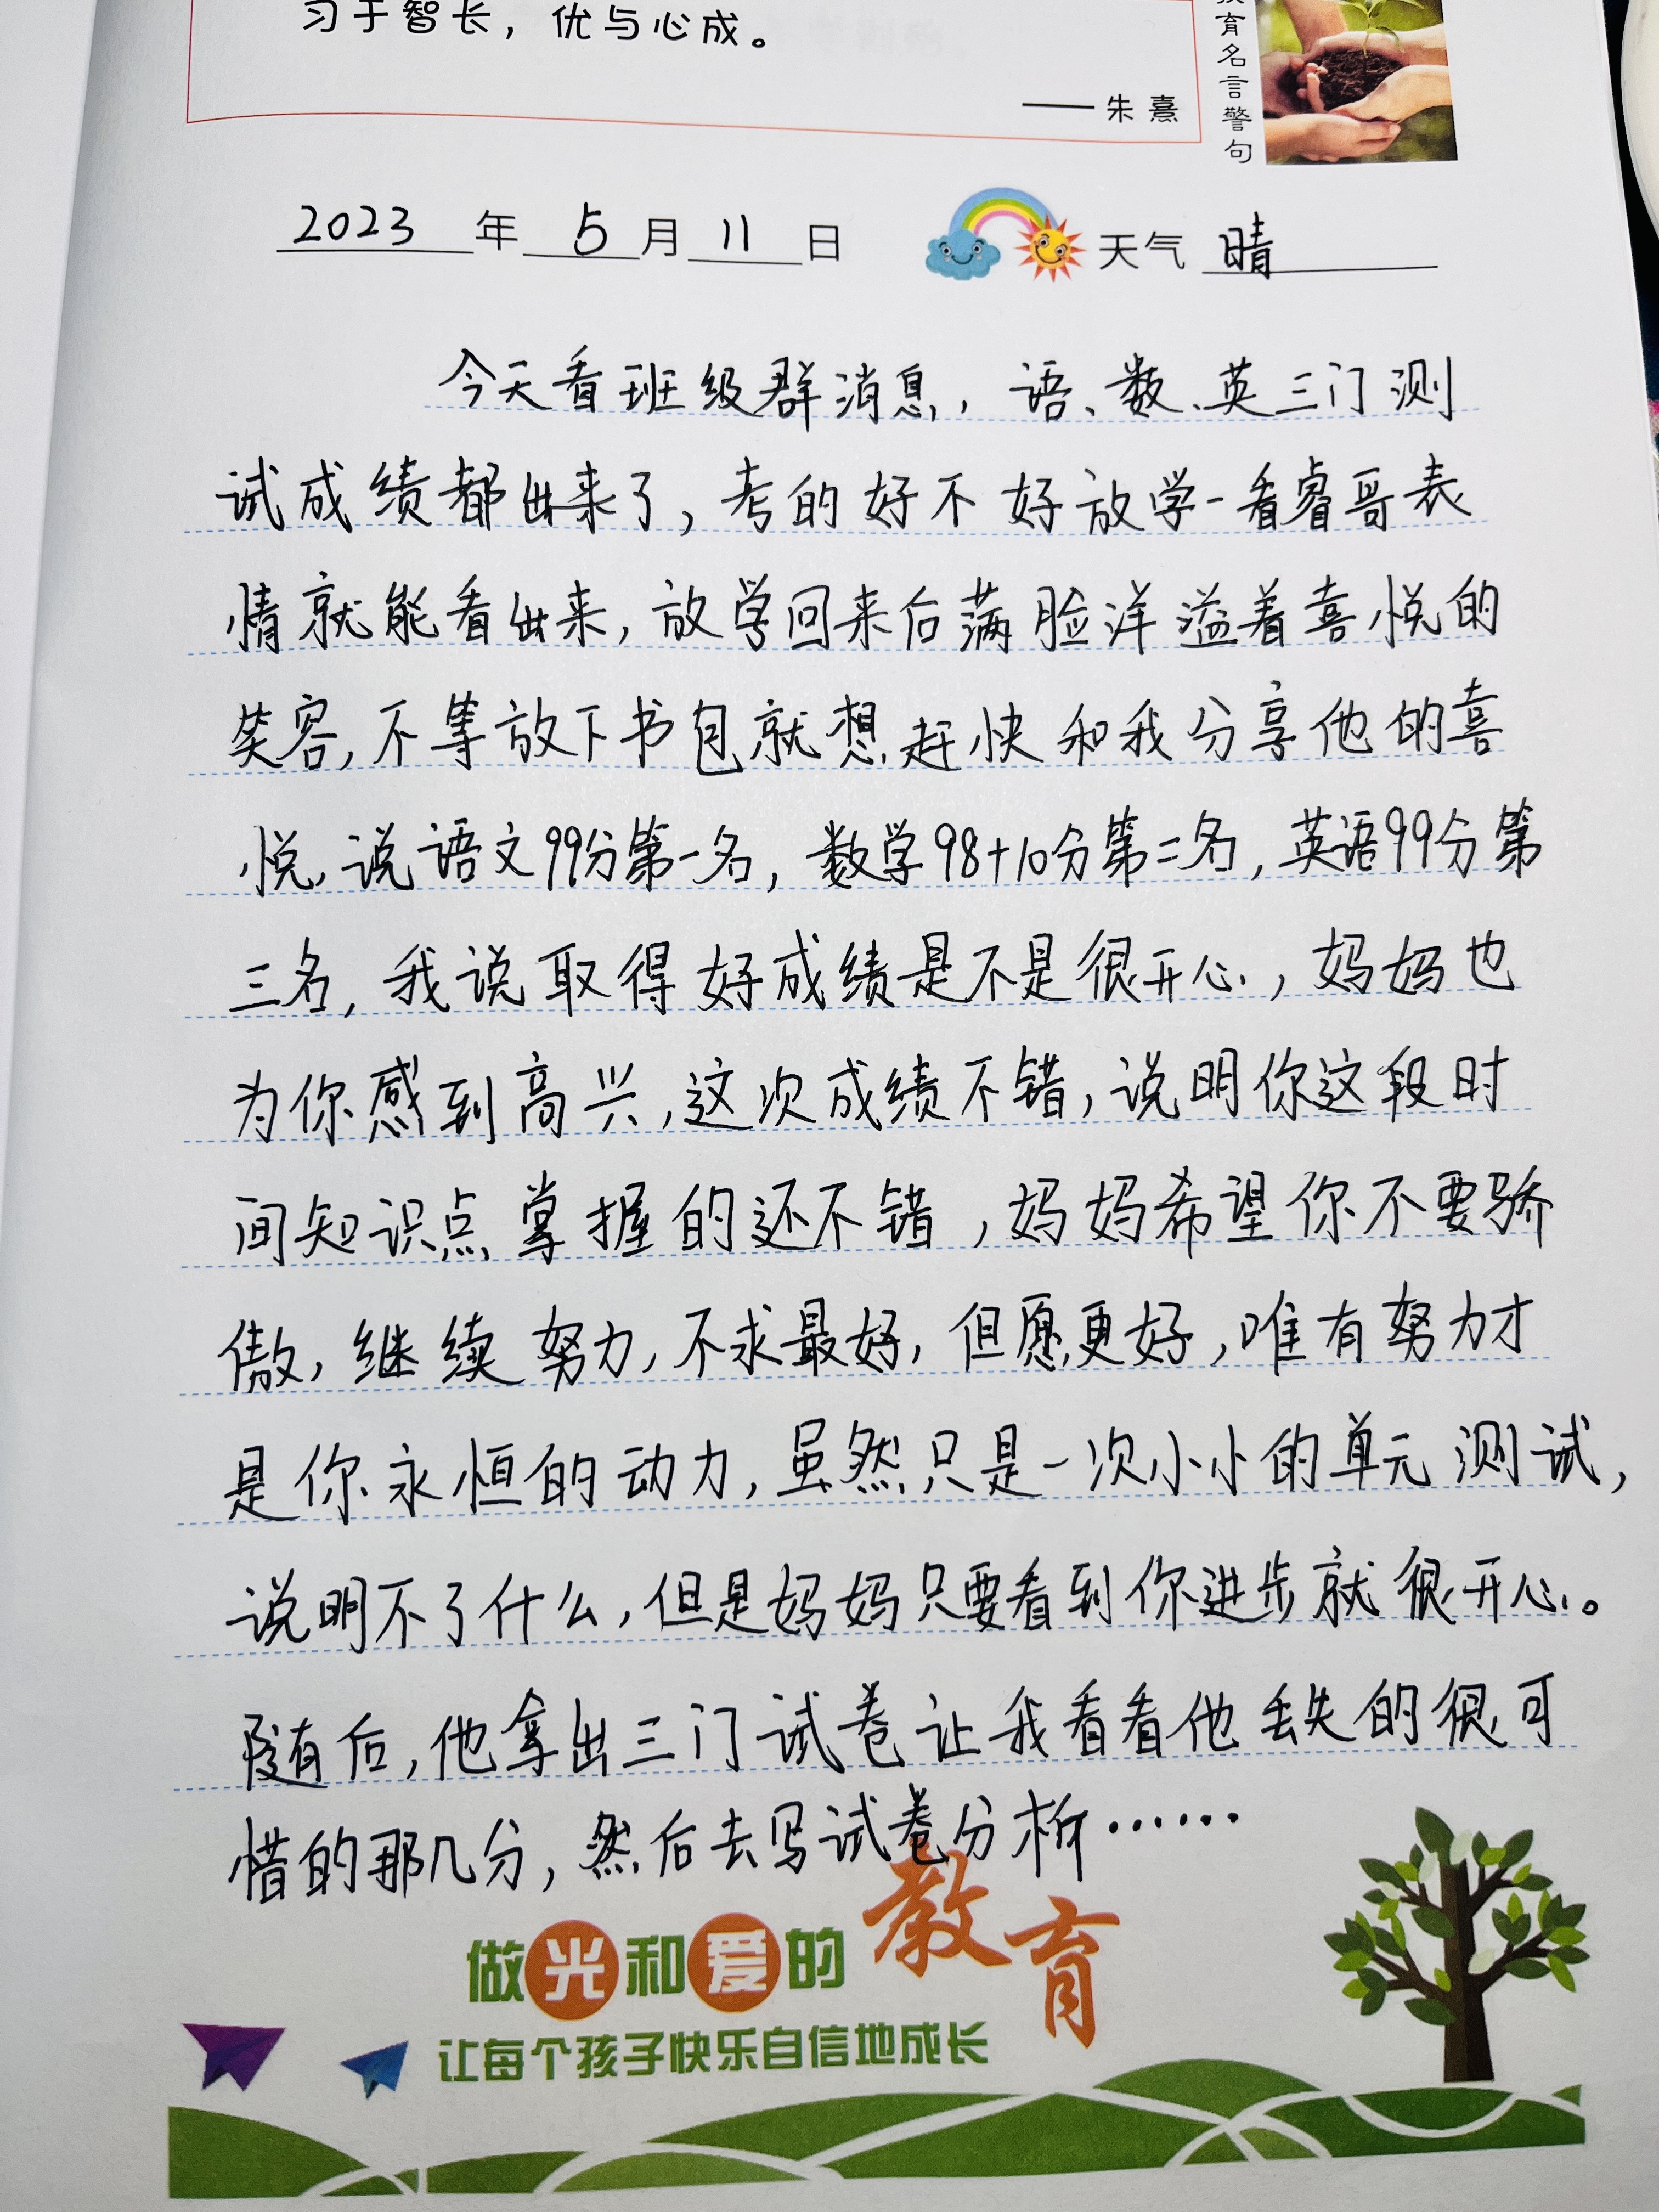 习于智长，优与心成。
——朱熹
育名言警句
2023年5月11日 天气 晴
今天看班级群消息，语、数、英三门测
试成绩都出来了，考的好不好放学一看睿哥表
情就能看出来，放学回来后满脸洋溢着喜悦的
笑容，不等放下书包就想赶快和我分享他的喜
悦，说语文99分第一名，数学98+10分第二名，英语99分第
三名，我说取得好成绩是不是很开心，妈妈也
为你感到高兴，这次成绩不错，说明你这段时
间知识点掌握的还不错，妈妈希望你不要骄
傲，继续努力，不求最好，但愿更好，唯有努力才
是你永恒的动力，虽然只是一次小小的单元测试，
说明不了什么，但是妈妈只要看到你进步就很开心。
随后，他拿出三门试卷让我看看他丢失的很可
惜的那几分，然后去写试卷分析……
做光和爱的教育
让每个孩子快乐自信地成长